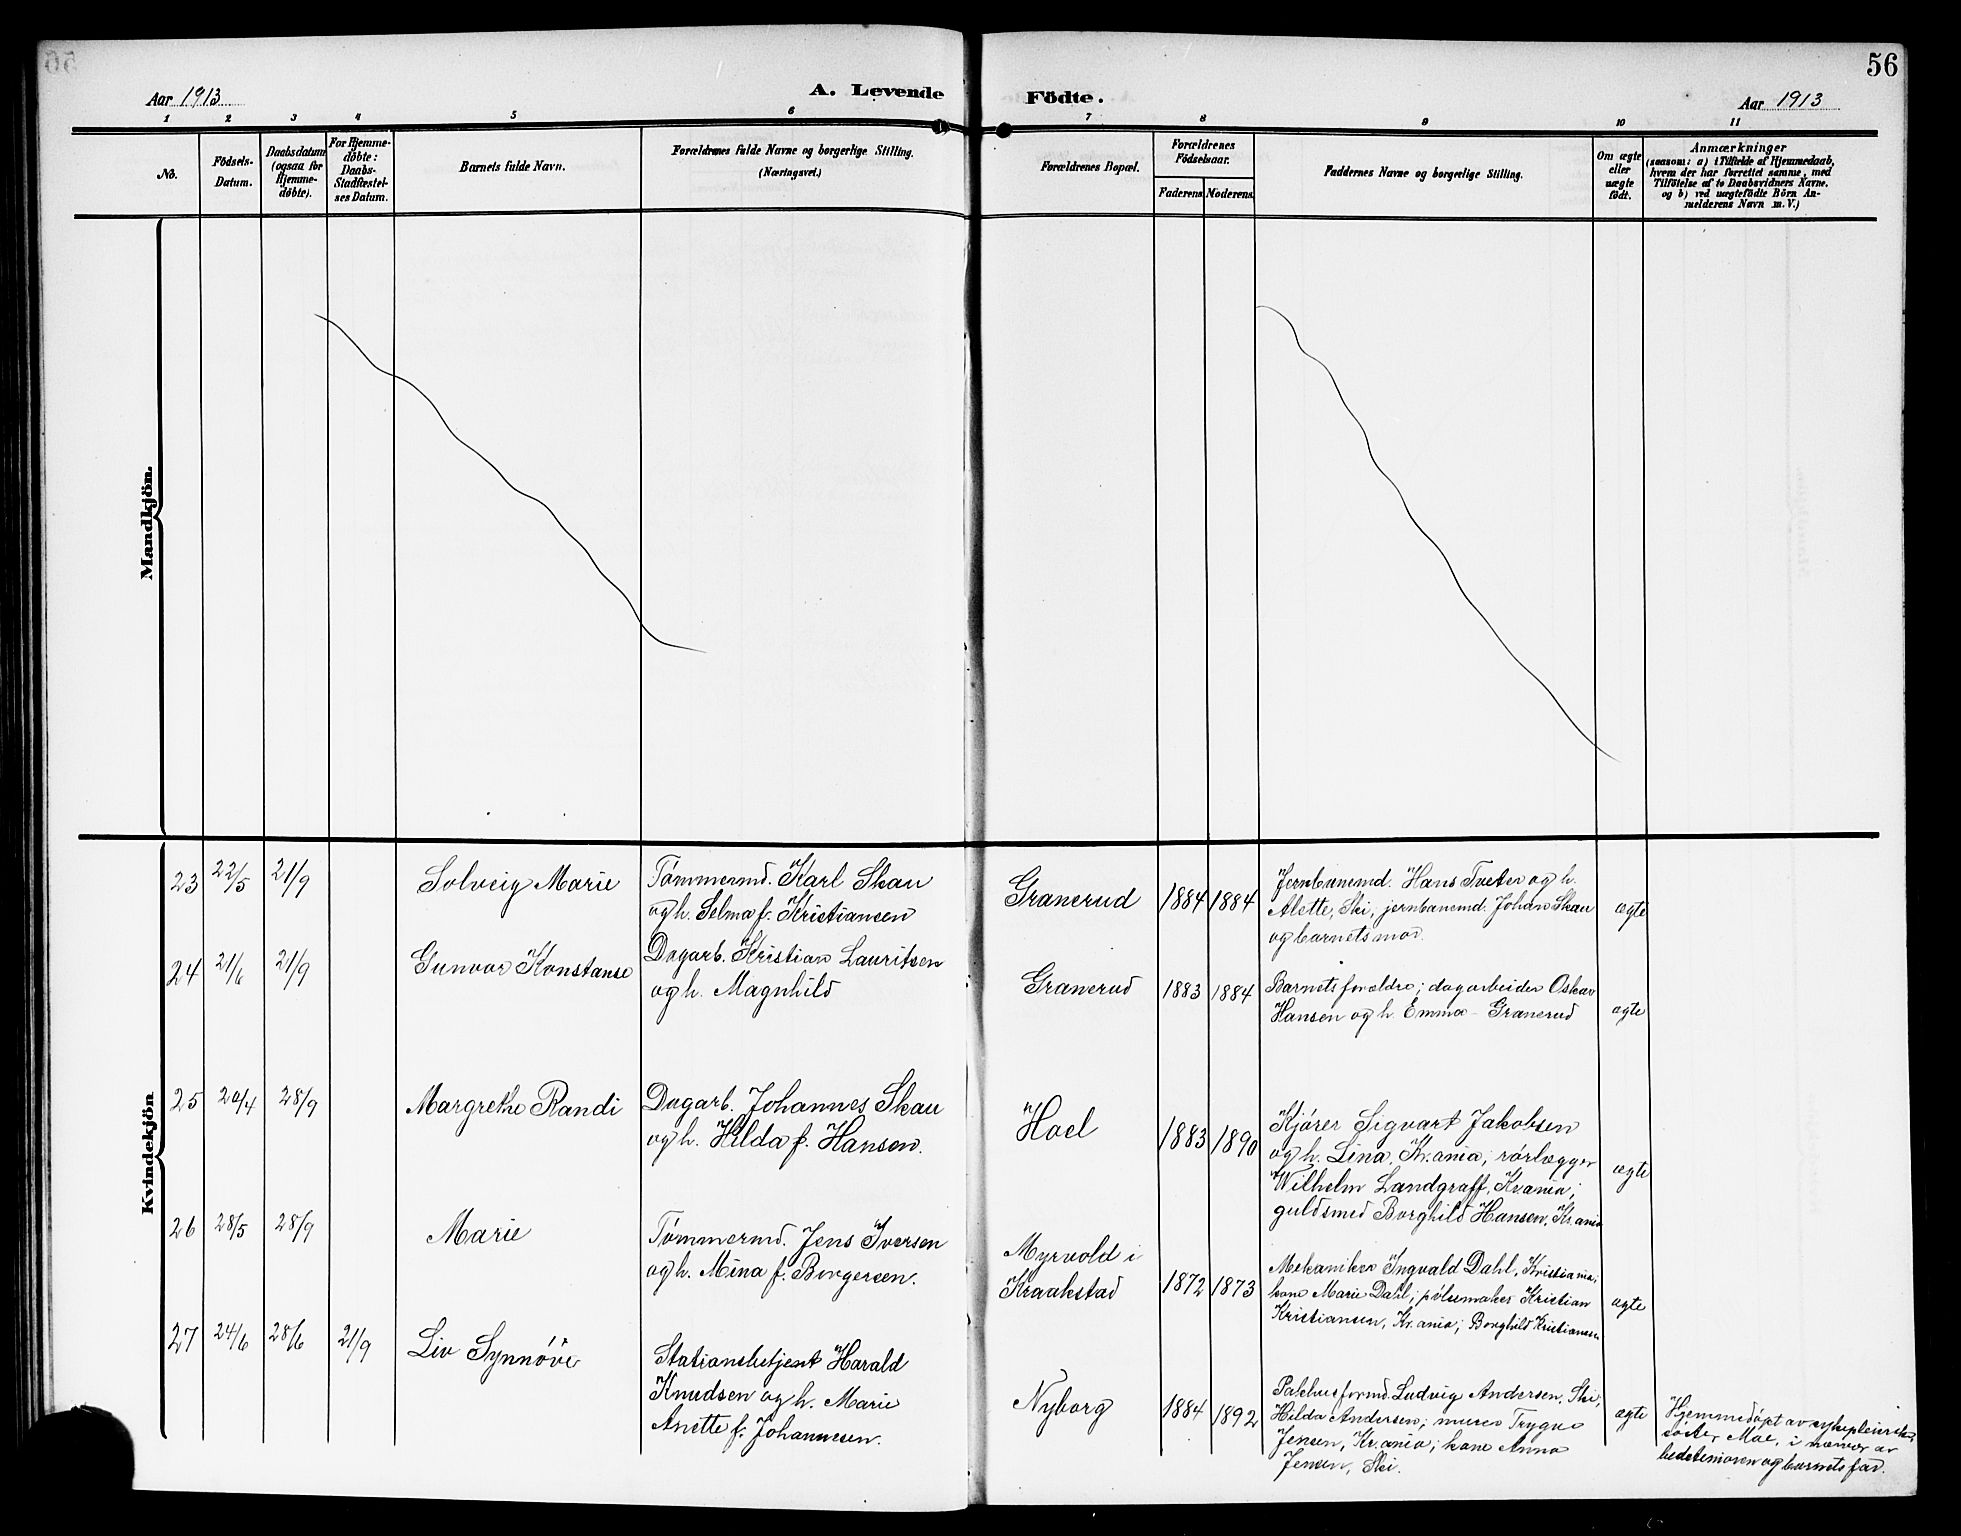 56
Aar 1913
A. Levende
Födte.
Aar 1913
1 2 3 4 5 6 7 8 9 10 11
No.
Födsels-
Datum.
Daabsdatum
(ogsaa for
Hjemme-
døbte).
For Hjemme-
døbte:
Daabs-
Stadfæstel-
ses Datum.
Barnets fulde Navn.
Forældrenes fulde Navne og borgerlige Stilling.
(Næringsvei.)
Forældrenes Bopæl.
Forældrenes
Födselsaar.
Faderens Moderens
Faddernes Navne og borgerlige Stilling.
Om ægte
eller
uægte
födt.
Anmærkninger
(saasom: a) i Tilfælde af Hjemmedaab,
hvem der har forrettet samme, med
Tilföielse af to Daabsvidners Navne,
og b) ved uægtefödte Börn An-
melderens Navn m. V.)
Mandkjön.
Kvindekjön
23 22/5 21/9
Solveig Marie
Tømmermd. Karl Skau
og h. Selma f. Kristiansen
Granerud
1884 1884
Jernbanemd. Hans Tveter og h.
Alette, Ski, jernbanemd. Johan Skau
og barnets mor.
ægte
24 21/6 21/9
Gunvor Konstanse
Dagarb. Kristian Lauritsen
og h. Magnhild
Granerud
1883 1884
Barnets forældre; dagarbeider Oskar
Hansen og h. Emma - Granerud
ægte
25 20/4 28/9
Margrethe Randi
Dagarb. Johannes Skau
og h. Hilda f. Hansen.
Hoel
1883 1890
Kjører Sigvart Jakobsen
og h. Lina, Kr.ania; rørlægger
Wilhelm Landgraff, Kr.ania;
guldsmed Borghild Hansen, Kr.ania
ægte
26 28/5 28/9
Marie
Tømmermd. Jens Iversen
og h. Mina f. Borgersen.
Myrvold i
Kraakstad
1872 1873
Mekaniker Ingvald Dahl, Kristiania;
kone Marie Dahl; pølsemaker Kristian
Kristiansen, Kr.ania; Borghild Kristiansen
ægte
27 24/6 28/6 21/9
Liv Synnøve
Stationsbetjent Harald
Knudsen og h. Marie
Anette f. Johannesen.
Nyborg
1884 1892
Pakhusformd. Ludvig Andersen, Ski;
Hilda Andersen; murer Trygve
Jensen, Kr.ania; kone Anna
Jensen, Ski.
ægte
Hjemmedøpt av sykepleierske
søster Moe, i nærvær av
bedstemoren og barnets far.